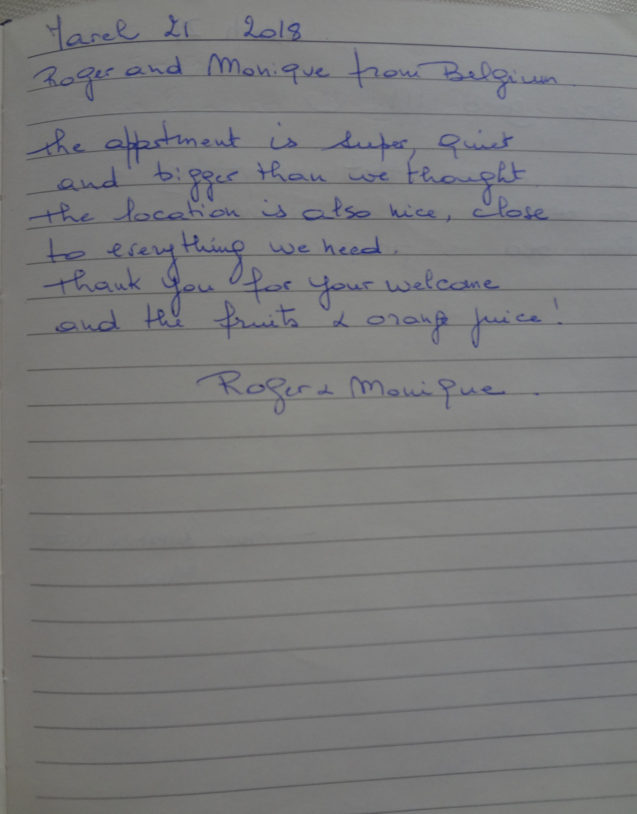 March 21 2018
Roger and Monique from Belgium
the appartment is super, quiet
and bigger than we thought
the location is also nice, close
to everything we need.
thank you for your welcome
and the fruits & orange juice!
Roger & Monique.